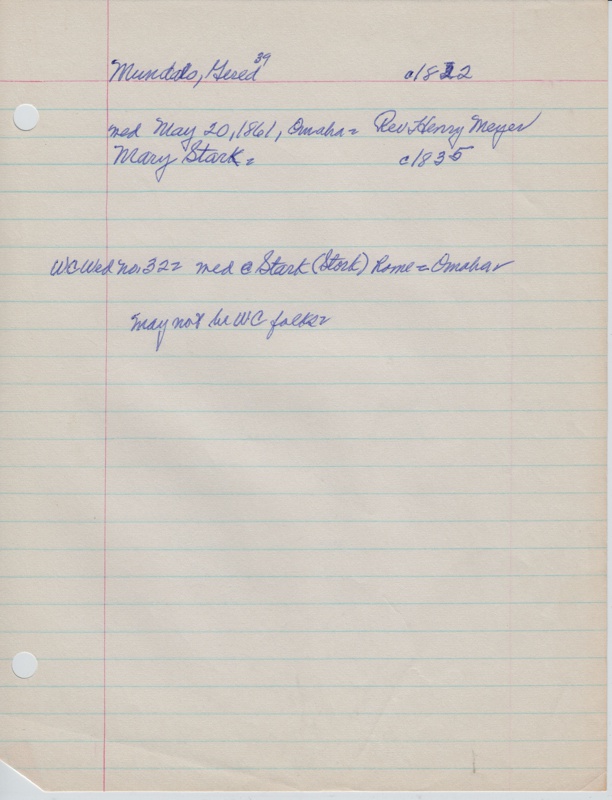 Mundalo, Gered 39 c1822
med May 20, 1861, Omaha = Rev. Henry Meyer
Mary Stark = c1835
WC Wed no. 32 = med @ Stark (Stork) Rome = Omaha =
may not be WC folks =